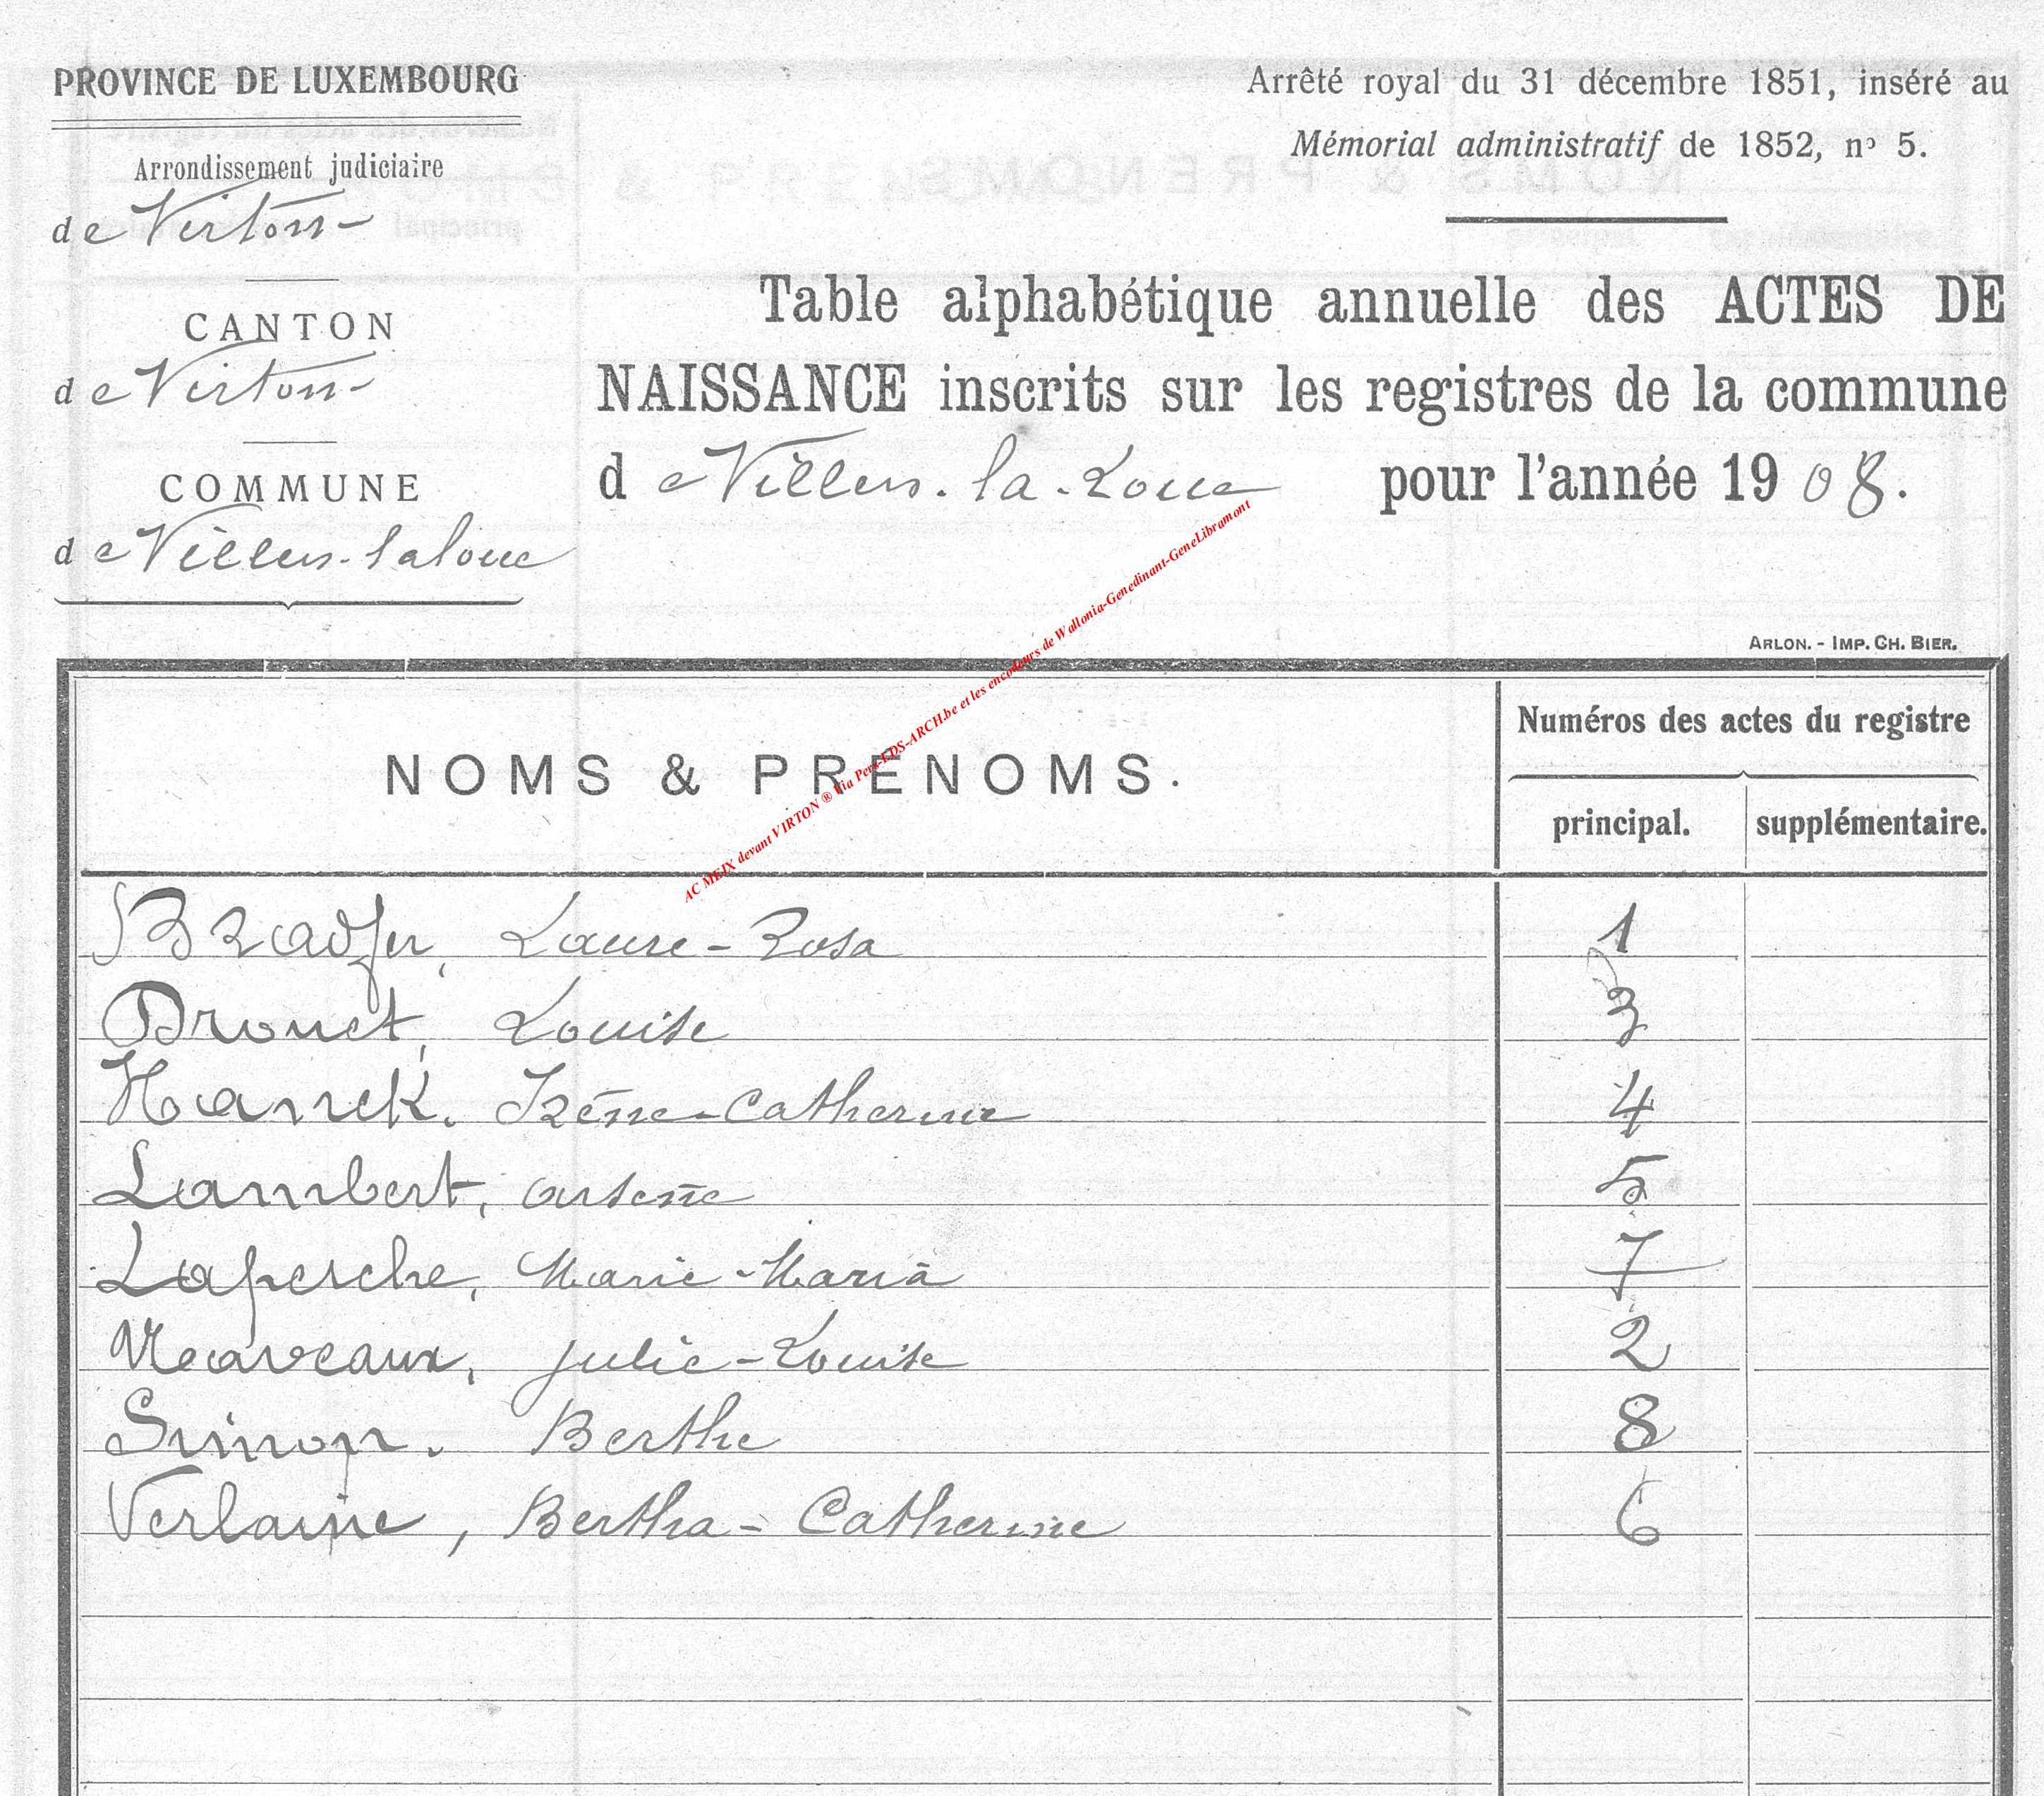 PROVINCE DE LUXEMBOURG
Arrondissement judiciaire
de Virton
CANTON
de Virton
COMMUNE
de Villers-la loue
Arrêté royal du 31 décembre 1851, inséré au
Mémorial administratif de 1852, nº 5.
Table alphabétique annuelle des ACTES DE
NAISSANCE inscrits sur les registres de la commune
de Villers-la-Loue pour l'année 1908.
ARLON. - IMP. CH. BIER.
AC MEIX devant VIRTON ® Via Pers-EDS-ARCH.be et les encodeurs de Wallonia-Genedinant-GeneLibramont
NOMS & PRÉNOMS.
Numéros des actes du registre
principal. supplémentaire.
Bradfer, Laure-Rosa 1
Drouet, Louise 3
Hanck. Irène-Catherine 4
Lambert, Arsène 5
Lapesche, Marie-Maria 7
Naveaux, Julie-Louise 2
Simon. Berthe 8
Verlaine, Bertha-Catherine 6